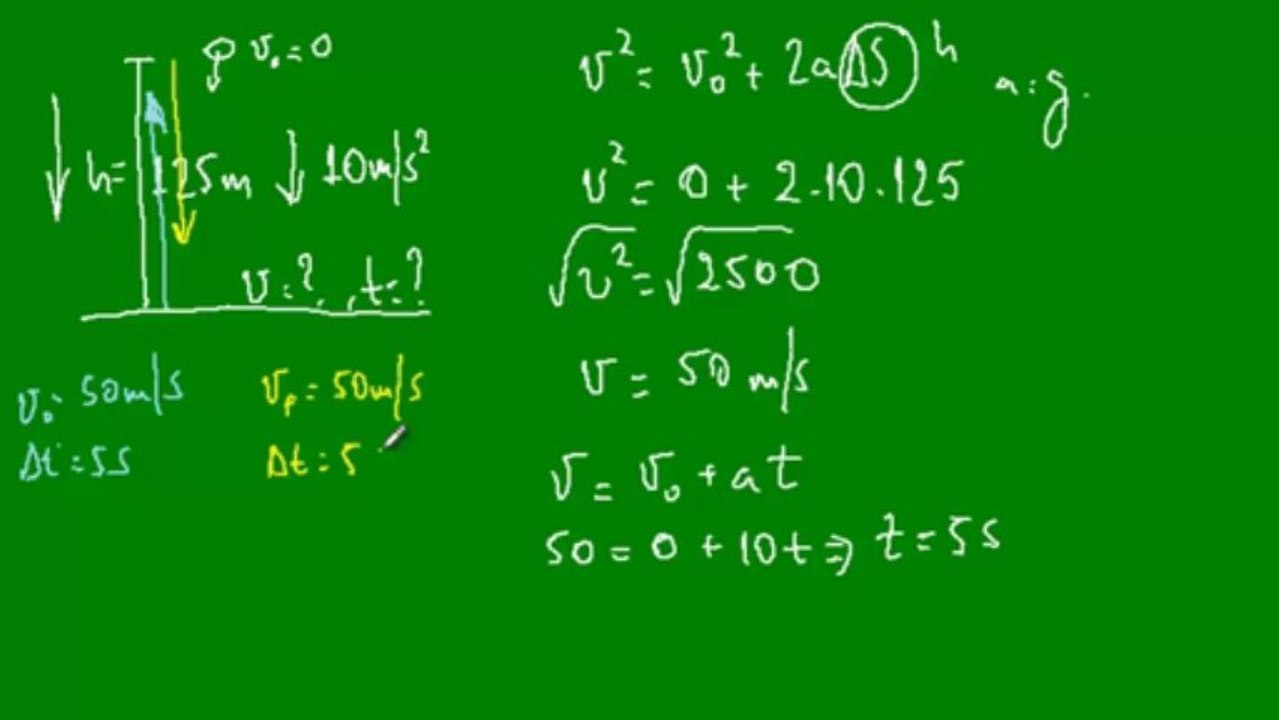 v₀ = 0
h = 125m ↓ 10m/s²
v = ? , t = ?
v₀ = 50m/s
Δt = 5s
vₚ = 50m/s
Δt = 5
v² = v₀² + 2aΔS h
a = g.
v² = 0 + 2.10.125
√v² = √2500
v = 50 m/s
v = v₀ + at
50 = 0 + 10t ⇒ t = 5s